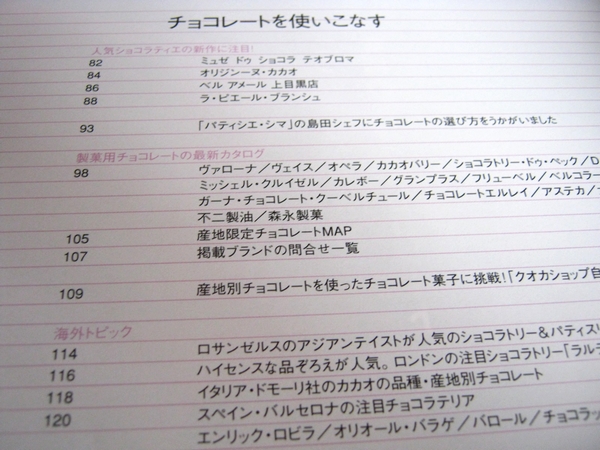 チョコレートを使いこなす
人気ショコラティエの新作に注目!
82 ミュゼ ドゥ ショコラ テオブロマ
84 オリジンーヌ・カカオ
86 ベル アメール 上目黒店
88 ラ・ピエール・ブランシュ
93 「パティシエ・シマ」の島田シェフにチョコレートの選び方をうかがいました
製菓用チョコレートの最新カタログ
98 ヴァローナ／ヴェイス／オペラ／カカオバリー／ショコラトリー・ドゥ・ペック／D
ミッシェル・クルイゼル／カレボー／グランプラス／フリューベル／ベルコラー
ガーナ・チョコレート・クーベルチュール／チョコレートエルレイ／アステカ／
不二製油／森永製菓
105 産地限定チョコレートMAP
107 掲載ブランドの問合せ一覧
109 産地別チョコレートを使ったチョコレート菓子に挑戦!「クオカショップ自
海外トピック
114 ロサンゼルスのアジアンテイストが人気のショコラトリー&パティスリ
116 ハイセンスな品ぞろえが人気。ロンドンの注目ショコラトリー「ラルテ
118 イタリア・ドモーリ社のカカオの品種・産地別チョコレート
120 スペイン・バルセロナの注目チョコラテリア
エンリック・ロビラ／オリオール・バラゲ／バロール／チョコラッ